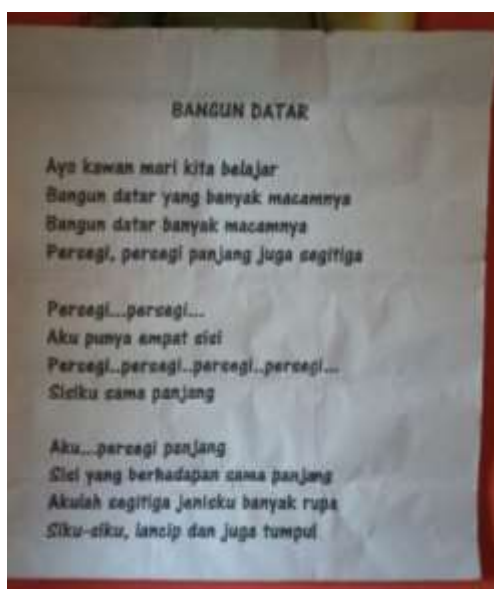 BANGUN DATAR
Ayo kawan mari kita belajar
Bangun datar yang banyak macamnya
Bangun datar banyak macamnya
Persegi, persegi panjang juga segitiga
Persegi...persegi...
Aku punya empat sisi
Persegi..persegi..persegi..persegi...
Sisiku sama panjang
Aku...persegi panjang
Sisi yang berhadapan sama panjang
Akulah segitiga jenisku banyak rupa
Siku-siku, lancip dan juga tumpul